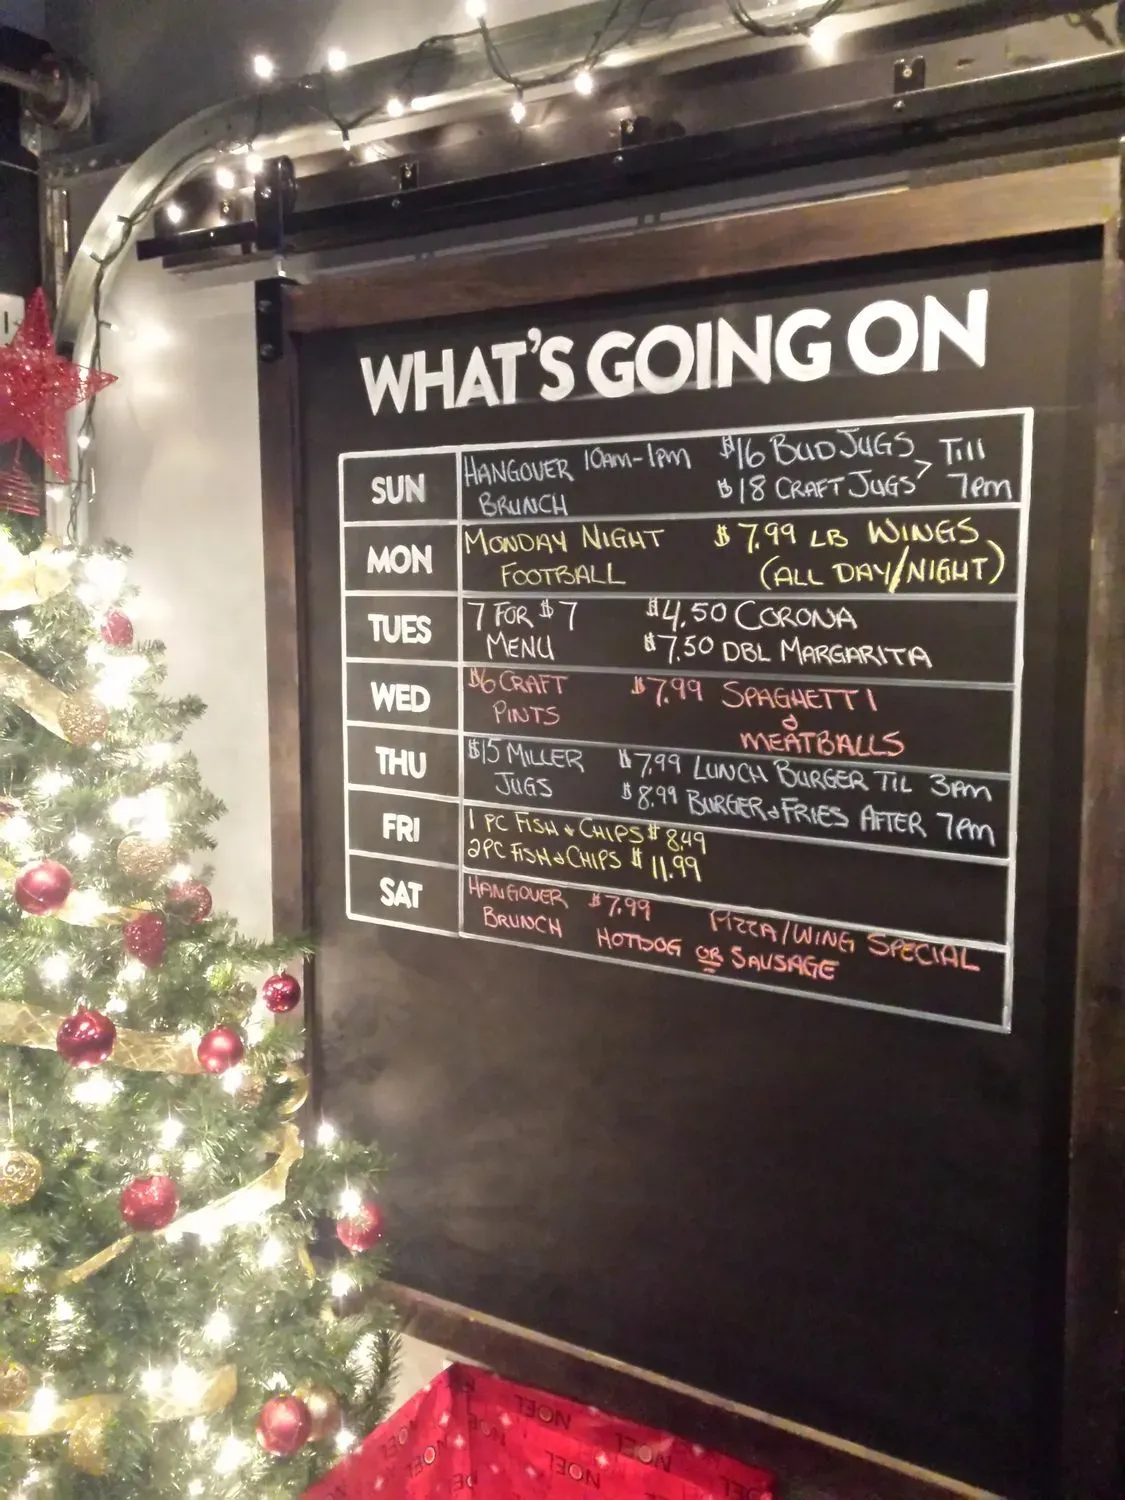 WHAT'S GOING ON
SUN
HANGOVER 10AM-1PM $16 BUD JUGS TILL
BRUNCH $18 CRAFT JUGS 7PM
MON
MONDAY NIGHT $7.99 LB WINGS
FOOTBALL (ALL DAY/NIGHT)
TUES
7 FOR $7 $4.50 CORONA
MENU $7.50 DBL MARGARITA
WED
$6 CRAFT $7.99 SPAGHETTI
PINTS &
MEATBALLS
THU
$15 MILLER $7.99 LUNCH BURGER TIL 3PM
JUGS $8.99 BURGER & FRIES AFTER 7PM
FRI
1 PC FISH & CHIPS $8.49
2PC FISH & CHIPS $11.99
SAT
HANGOVER $7.99 PIZZA/WING SPECIAL
BRUNCH HOTDOG OR SAUSAGE
NOEL
NOEL
NOEL
NOEL